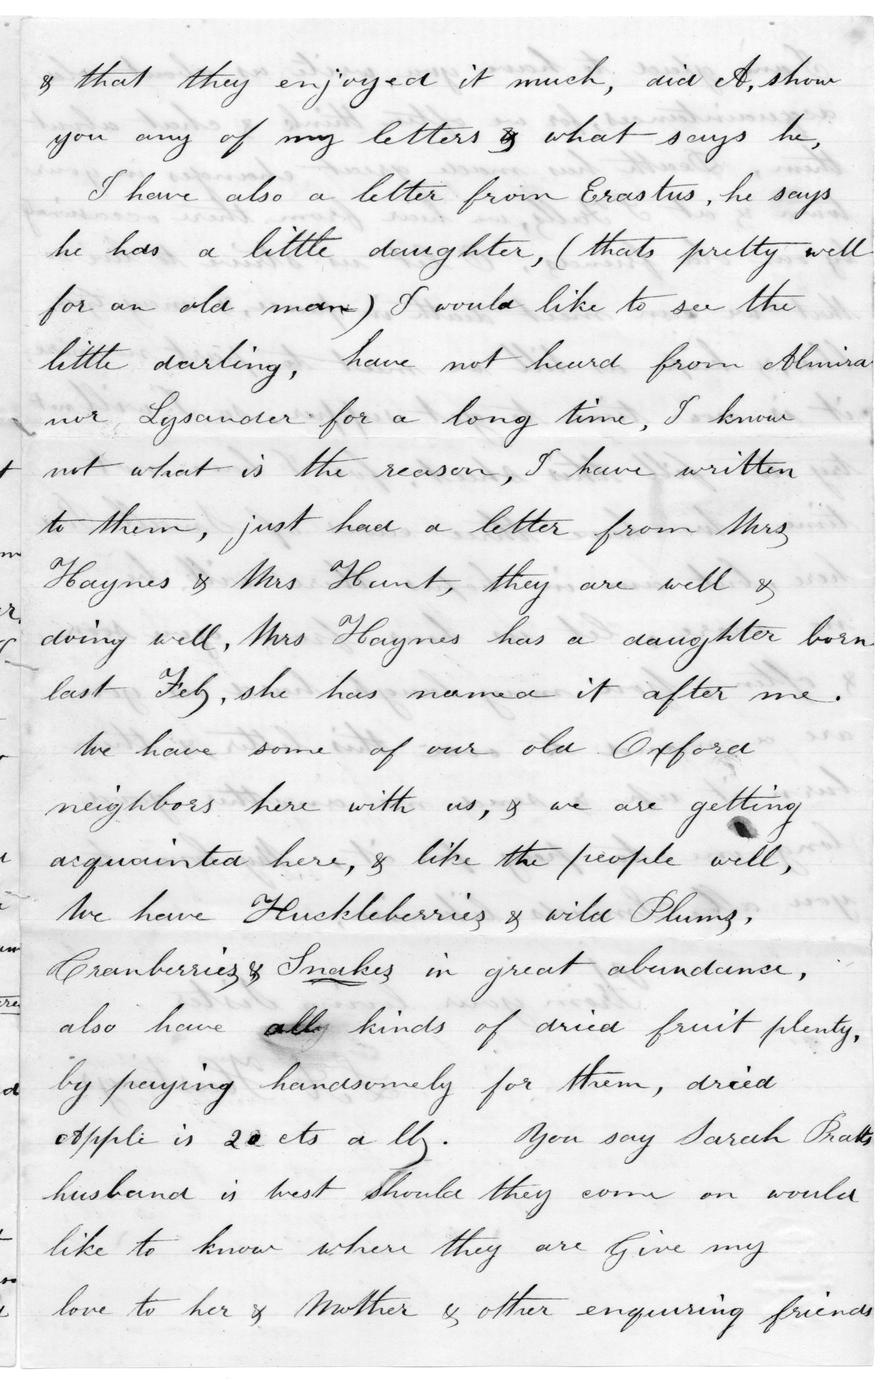 & that they enjoyed it much, did A, show
you any of my letters & what says he,
I have also a letter from Erastus, he says
he has a little daughter, (thats pretty well
for an old man) I would like to see the
little darling, have not heard from Almira
nor Lysander for a long time, I know
not what is the reason, I have written
to them, just had a letter from Mrs
Haynes & Mrs Hunt, they are well &
doing well, Mrs Haynes has a daughter born
last Feb, she has named it after me.
We have some of our old Oxford
neighbors here with us, & we are getting
acquainted here, & like the people well,
We have Huckleberries & wild Plums,
Cranberries & Snakes in great abundance,
also have all kinds of dried fruit plenty,
by paying handsomely for them, dried
Apple is 20 cts a lb. You say Sarah Pratts
husband is west should they come on would
like to know where they are Give my
love to her & Mother & other enquiring friends